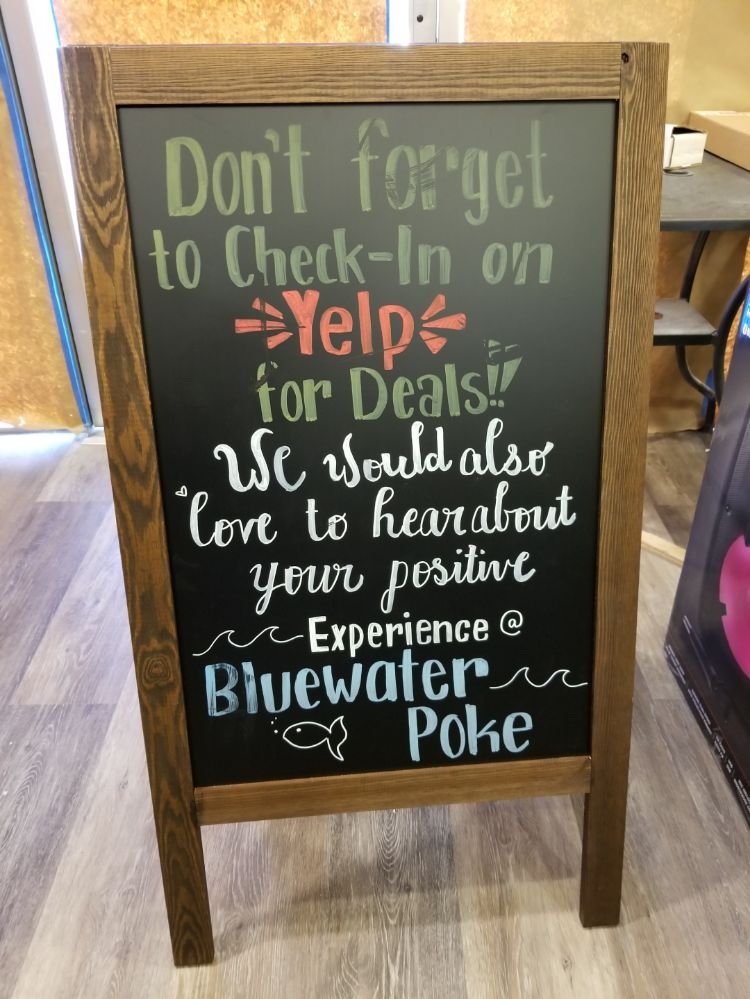 Don't forget
to Check-In on
Yelp
for Deals!!
We would also
love to hear about
your positive
Experience @
Bluewater
Poke